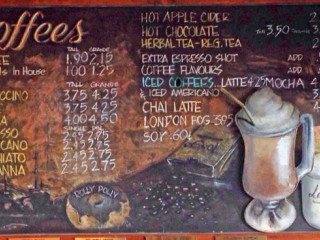 offees
TALL GRANDE
TE 1.90 2.15
ls - In House 1.00 1.25
TALL GRANDE
CCINO 3.75 4.25
3.75 4.25
4.00 4.50
SINGLE
SSO 2.45 2.75
CANO 2.45 2.75
HIATO 2.45 2.75
ANNA 2.45 2.75
ROLY POLY
HOT APPLE CIDER 2
HOT CHOCOLATE 3.50
HERBAL TEA - REG. TEA 2
EXTRA ESPRESSO SHOT ADD
COFFEE FLAVOURS ADD
ICED COFFEES.. LATTE 4.25 MOCHA 4
ICED AMERICANO 3
CHAI LATTE 4
LONDON FOG 3.95
SOY .60¢